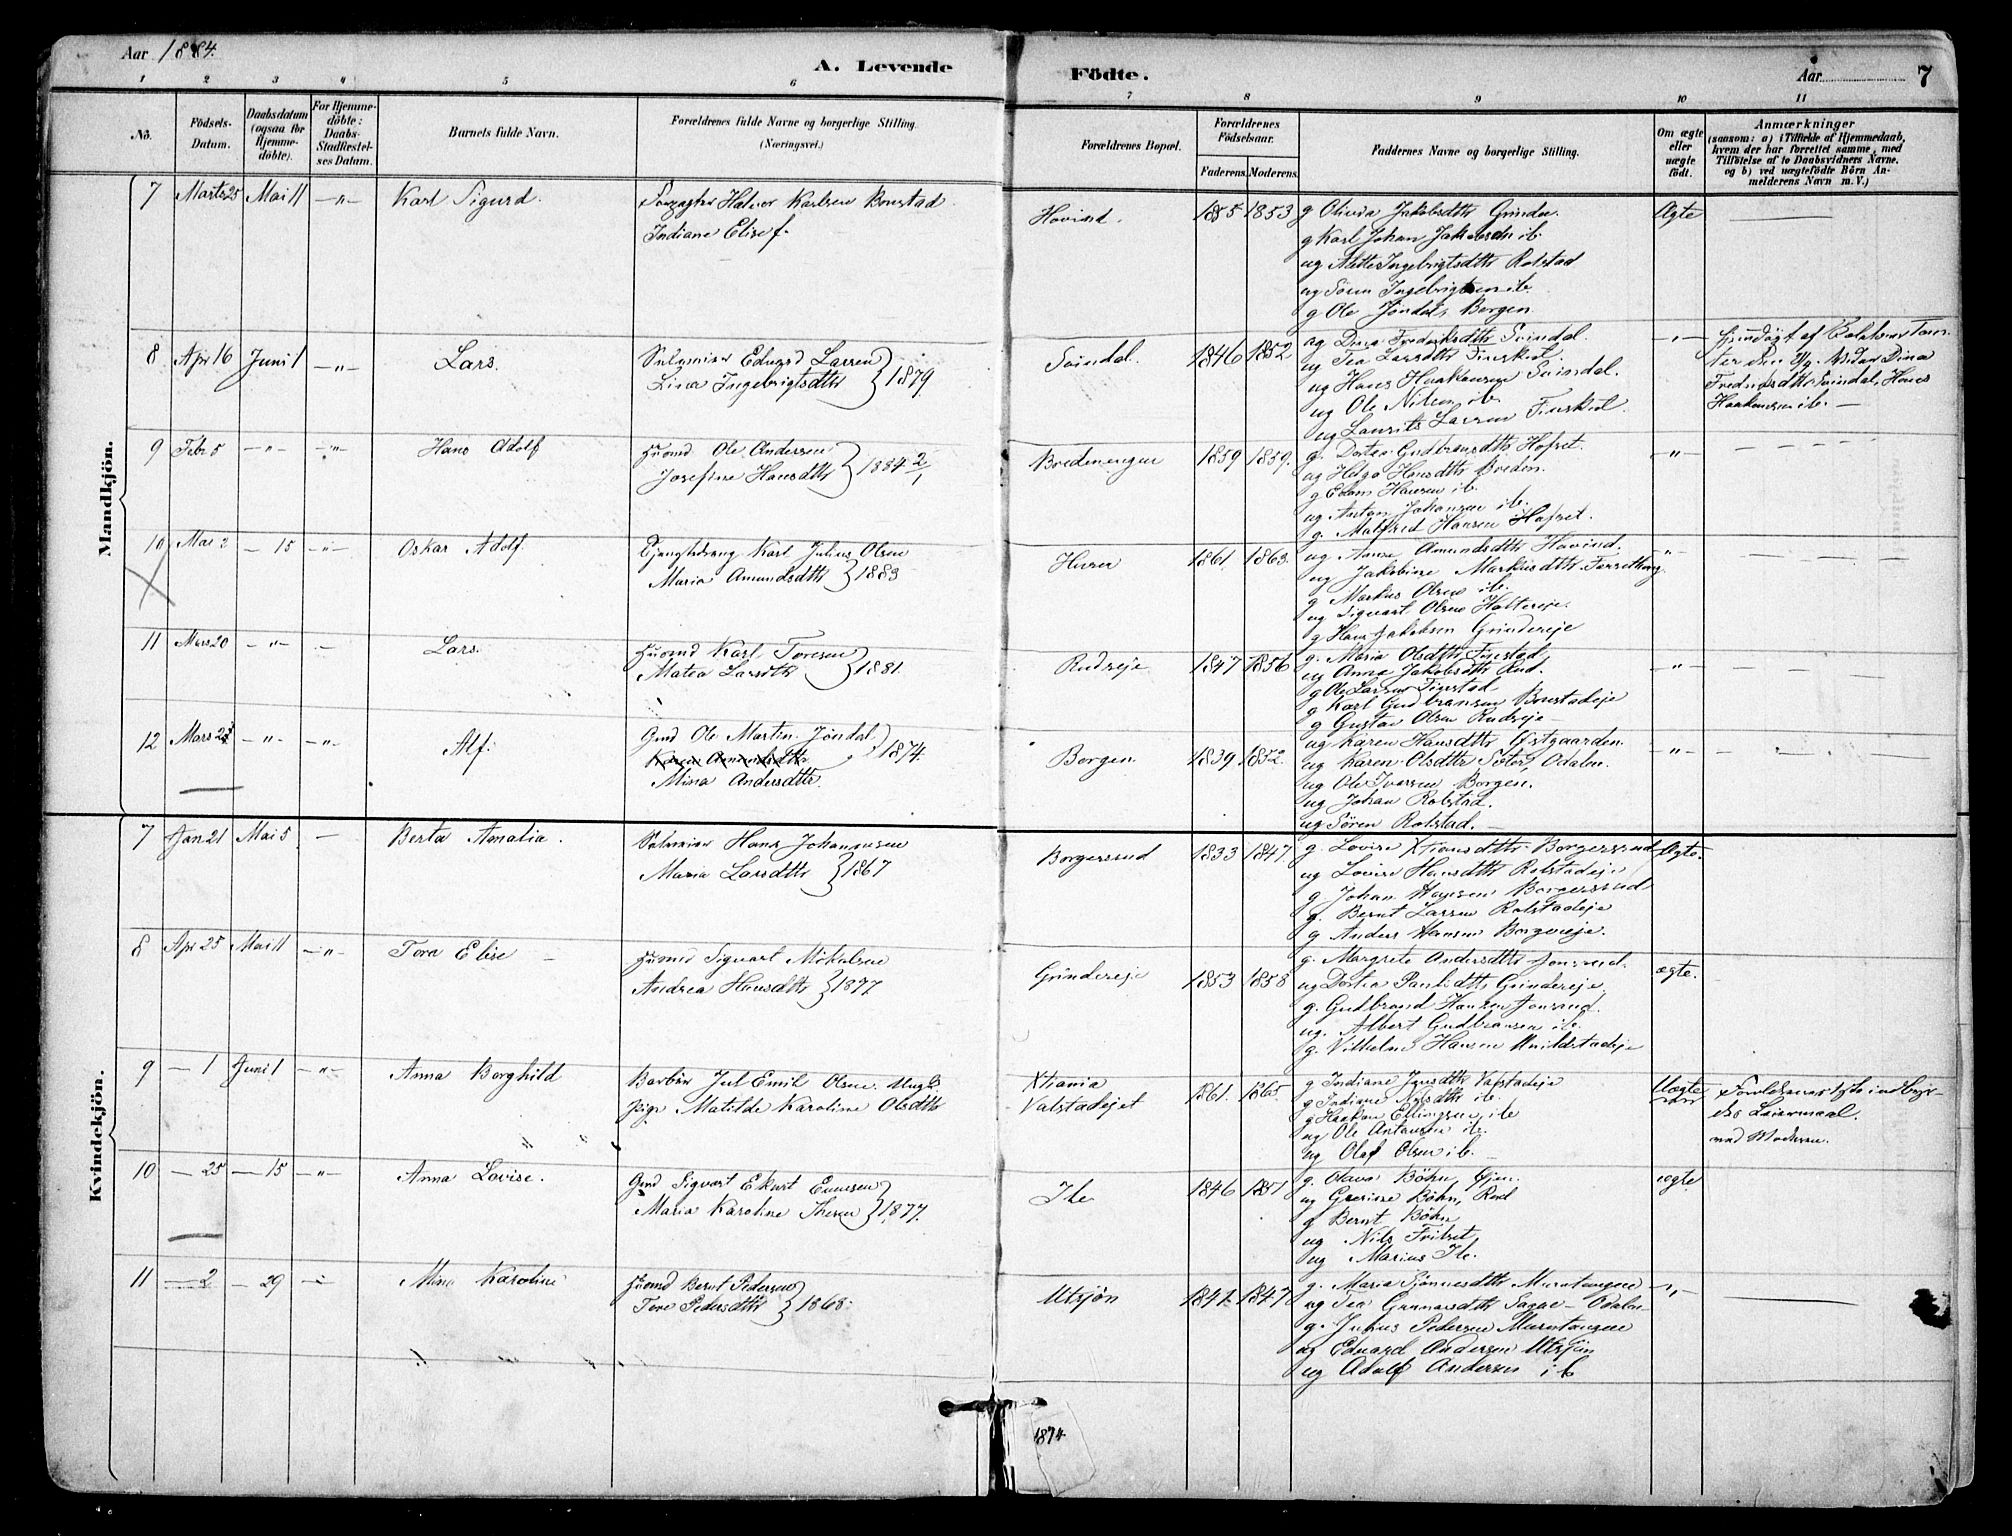 Aar 1884.
A. Levende
Födte.
Aar
7
1 2 3 4 5 6 7 8 9 10 11
Nö.
Födsels-
Datum.
Daabsdatum
(ogsaa for
Hjemme-
döbte).
For Hjemme-
döbte:
Daabs-
Stadfæstel-
ses Datum.
Barnets fulde Navn.
Forældrenes fulde Navne og borgerlige Stilling.
(Næringsvei.)
Forældrenes Bopæl.
Forældrenes
Födselsaar.
Faderens. Moderens.
Faddernes Navne og borgerlige Stilling.
Om ægte
eller
uægte
födt.
Anmærkninger
(saasom: a) i Tilfælde af Hjemmedaab,
hvem der har forrettet samme, med
Tilföielse af to Daabsvidners Navne,
og b) ved uægtefödte Börn An-
melderens Navn m. V.)
Mandkjön.
7 Marts 25 Mai 11 —"— Karl Sigurd. Halvor Karlsen Bonstad
Indiane Elise f.
Hovind. 1855 1853 Ægte
g Olivia Jakobsdtr Grinder.
g Karl Johan Jakobsen ib.
ug Alette Ingebrigtsdtr Rolstad
ug Sören Ingebrigtsen ib.
g Ole Jöndal, Borgen
8 Apr 16 Juni 1 —"— Lars. Selveier Edvard Larsen
Lina Ingebrigtsdtr } 1879
Svindal. 1846 1852 —"—
ug Dina Frederiksdtr Svindal.
ug Tea Larsdtr Finskol.
ug Hans Haakonsen Svindal.
ug Ole Nilsen ib.
ug Laurits Larsen Finskol.
Hjemdöbt af
Dina
Fredriksdtr Svindal, Hans
Haakonsen ib. —
9 Febr 5 —"— —"— Hans Adolf Husmd Ole Andersen
Josefine Hansdtr } 1884 2/1
Bredenengen 1859 1859. —"—
g. Dortea Gudbransdtr Hofset.
ug Helga Hansdtr Breden.
g Edam Hansen ib.
ug Anton Johansen ib.
g. Malfred Hansen Hofset.
10 Mai 2 —15 —"— Oskar Adolf. Karl Julius Olsen
Maria Amundsdtr } 1883
Huser 1861. 1863. "
ug Anna Amundsdtr Hovind.
ug Jakobine Markusdtr
g Markus Olsen ib.
ug Sigvart Olsen Haltereje.
g Hans Jakobsen Grindereje
11 Mars 20 —"— — Lars. Husmd Karl Toresen
Matea Larsdtr } 1881.
Rudseje 1847 1856 —"—
g. Maria Olsdtr Finstad,
ug Anna Jakobsdtr Rud.
g Ole Larsen Finstad
g Karl Gudbransen Bonstadeje
g Gustav Olsen Rudseje—
12 Mars 23 —"— —"— Alf. Gmd Ole Martin Jöndal
Karen Amundsdtr
Mina Andersdtr. 1874.
Borgen 1839 1852. —"—
ug Karen Hansdtr Östgaarden.
ug Karen Olsdtr Odalen.
ug Ole Iversen Borgen.
ug Johan Rolstad.
ug Sören Rolstad. —
Kvindekjön.
7 Jan 21 Mai 5 — Berta Amalia. Selveier Hans Johannesen
Maria Larsdtr } 1867
Borgersrud 1833 1847. Ægte.
g. Lovise Xtiansdtr Borgersrud
ug Lovise Hansdtr Rolstadeje
g Johan Hansen Borgersrud
g. Bernt Larsen Rolstadeje
g Anders Hansen Borgereje.
8 Apr 25 Mai 11 —"— Tora Elise — Husmd Sigvart Mikalsen
Andrea Hansdtr } 1877
Grindereje 1853 1858 ægte.
g. Margrete Andersdtr Jonsrud.
ug Dortea Paulsdtr Grindereje.
g. Gudbrand Hansen Jonsrud.
ug. Albert Gudbransen ib.
g. Vilhelm Hansen
9 — 1 Juni 1 —"— Anna Borghild Jul Emil Olsen. Ungk
Pige Matilde Karoline Olsdtr
Xtiania
Valstadejet 1861. 1865. Uægte
g Indiane Jensdtr Valstadeje
g Indiane Nilsdtr ib.
g Haakon Ellingsen ib
ug Ole Antonsen ib.
ug Olaf Olsen ib. —
Leiermaal.
med Moderen.
10 — 25 — 15 —"— Anna Lovise. Gmd Sigvart Ekart Evensen
Maria Karoline Iversen } 1877.
Ile 1846 1851 ægte
g. Olava Böhn,
ug Grerisse Böhn, Rud
g Bernt Böhn
ug Nils
ug Marius Ile.
11 — 2 — 29 Mina Karoline Husmd Bernt Pedersen
Tore Pedersdtr } 1868.
Utsjön 1841. 1847 —"—
g. Maria Murstangene
ug Tea Gunnarsdtr Odalen
g. Julius Pedersen Murstangene
ug Edvard Andersen Utsjön
ug Adolf Andersen ib
1874